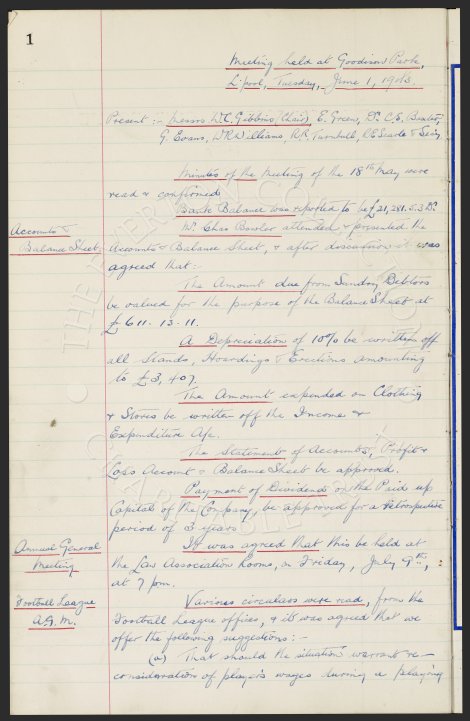 1
Meeting held at Goodison Park,
L'pool, Tuesday, June 1, 1943
Present :- Messrs W.C. Gibbins, (Chair), E. Green, Dr. C.S. Baxter,
G. Evans, W.R. Williams, R.R. Turnbull, R.E. Searle & Secy.
Minutes of the Meeting of the 18th May were
read & confirmed
Bank Balance was reported to be £21,281.5.3 Dr.
Accounts &
Balance Sheet
Mr. Chas Bowler attended & presented the
Accounts & Balance Sheet, & after discussion it was
agreed that :-
The Amount due from Sundry Debtors
be valued for the purpose of the Balance Sheet at
£611-13-11.
A Depreciation of 10% be written off
all Stands, Hoardings & Erections amounting
to £3,407.
The Amount expended on Clothing
& Stores be written off the Income &
Expenditure A/c.
The Statement of Accounts, Profit &
Loss Account & Balance Sheet be approved.
Payment of Dividend on the Paid up
Capital of the Company, be approved for a retrospective
period of 3 years.
Annual General
Meeting
It was agreed that this be held at
the Law Association Rooms, on Friday, July 9th,
at 7 pm.
Football League
A.G.M.
Various circulars were read, from the
Football League offices, & it was agreed that we
offer the following suggestions :-
(a) That should the situation warrant re-
consideration of player's wages during a playing